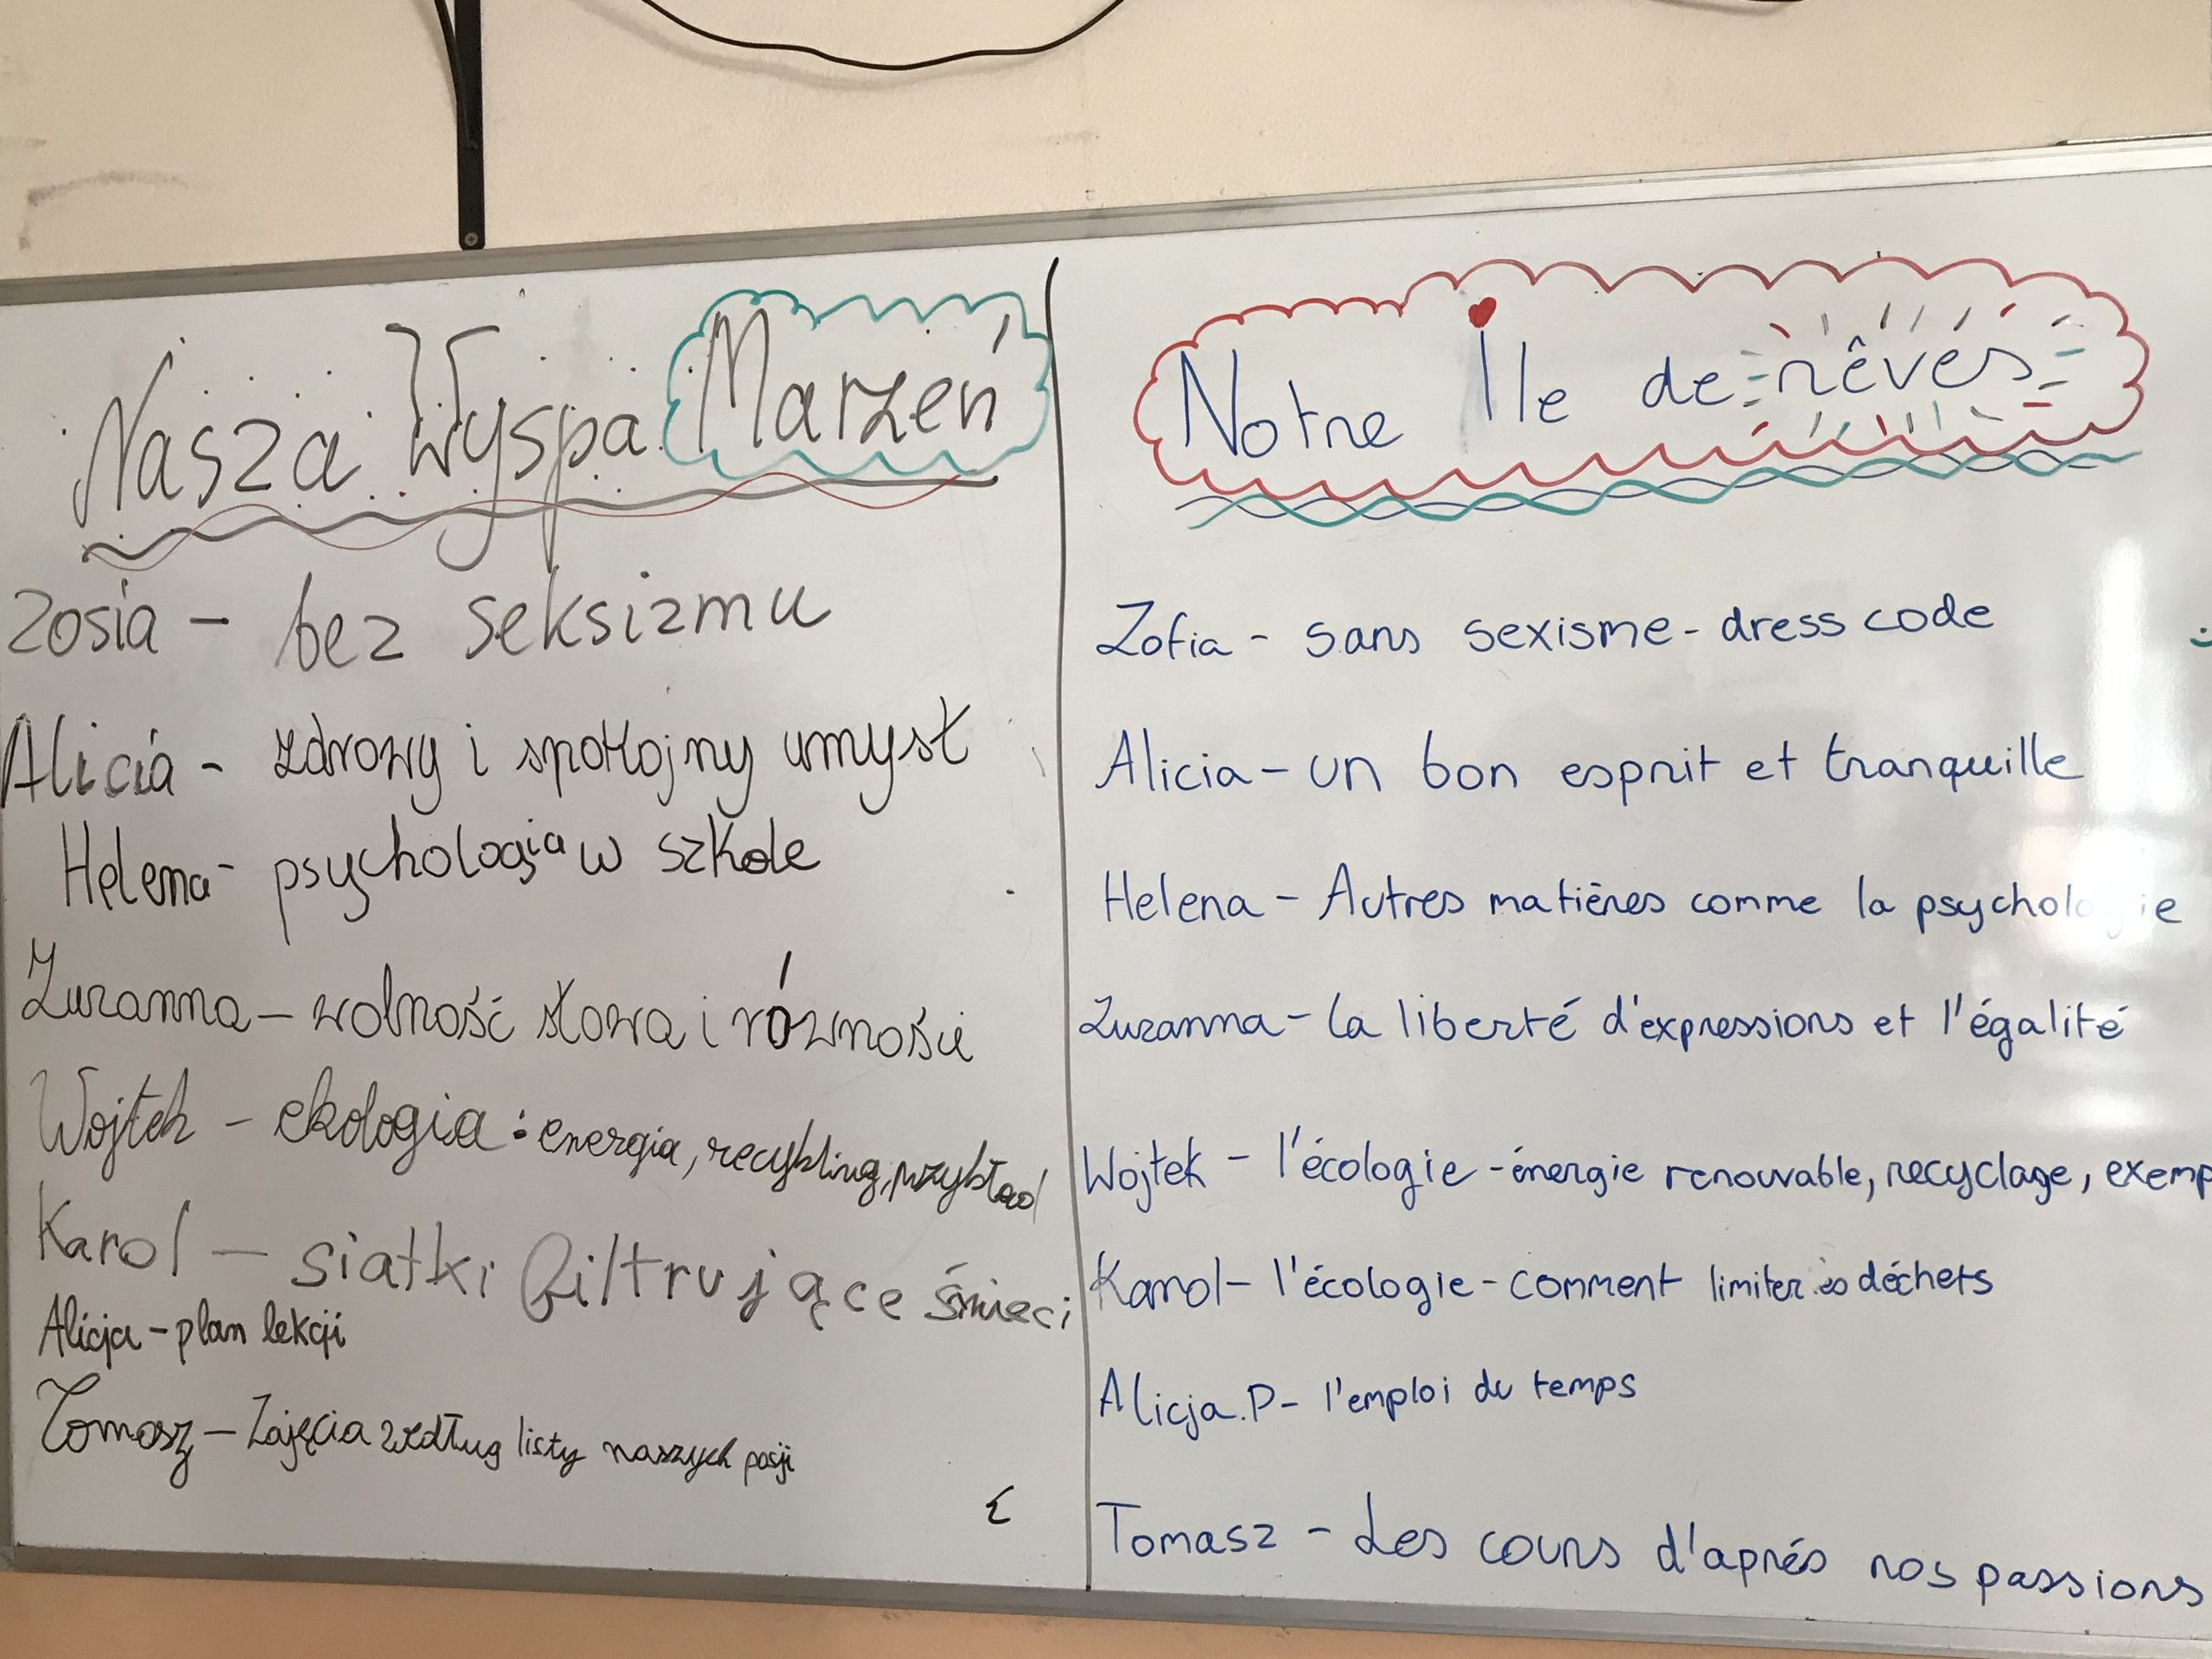 Nasza Wyspa Marzeń
Zosia - bez seksizmu
Alicia - zdrowy i spokojny umysł
Helena - psychologia w szkole
Zuzanna - wolność słowa i równości
Wojtek - ekologia: energia, recykling, przykład
Karol - siatki filtrujące śmieci
Alicja - plan lekcji
Tomasz - Zajęcia według listy naszych pasji
Notre Île de rêves
Zofia - sans sexisme - dress code
Alicia - un bon esprit et tranquille
Helena - Autres matières comme la psychologie
Zuzanna - la liberté d'expressions et l'égalité
Wojtek - l'écologie - énergie renouvable, recyclage, exemp
Karol - l'écologie - comment limiter déchets
Alicja.P - l'emploi du temps
Tomasz - Les cours d'aprés nos passions